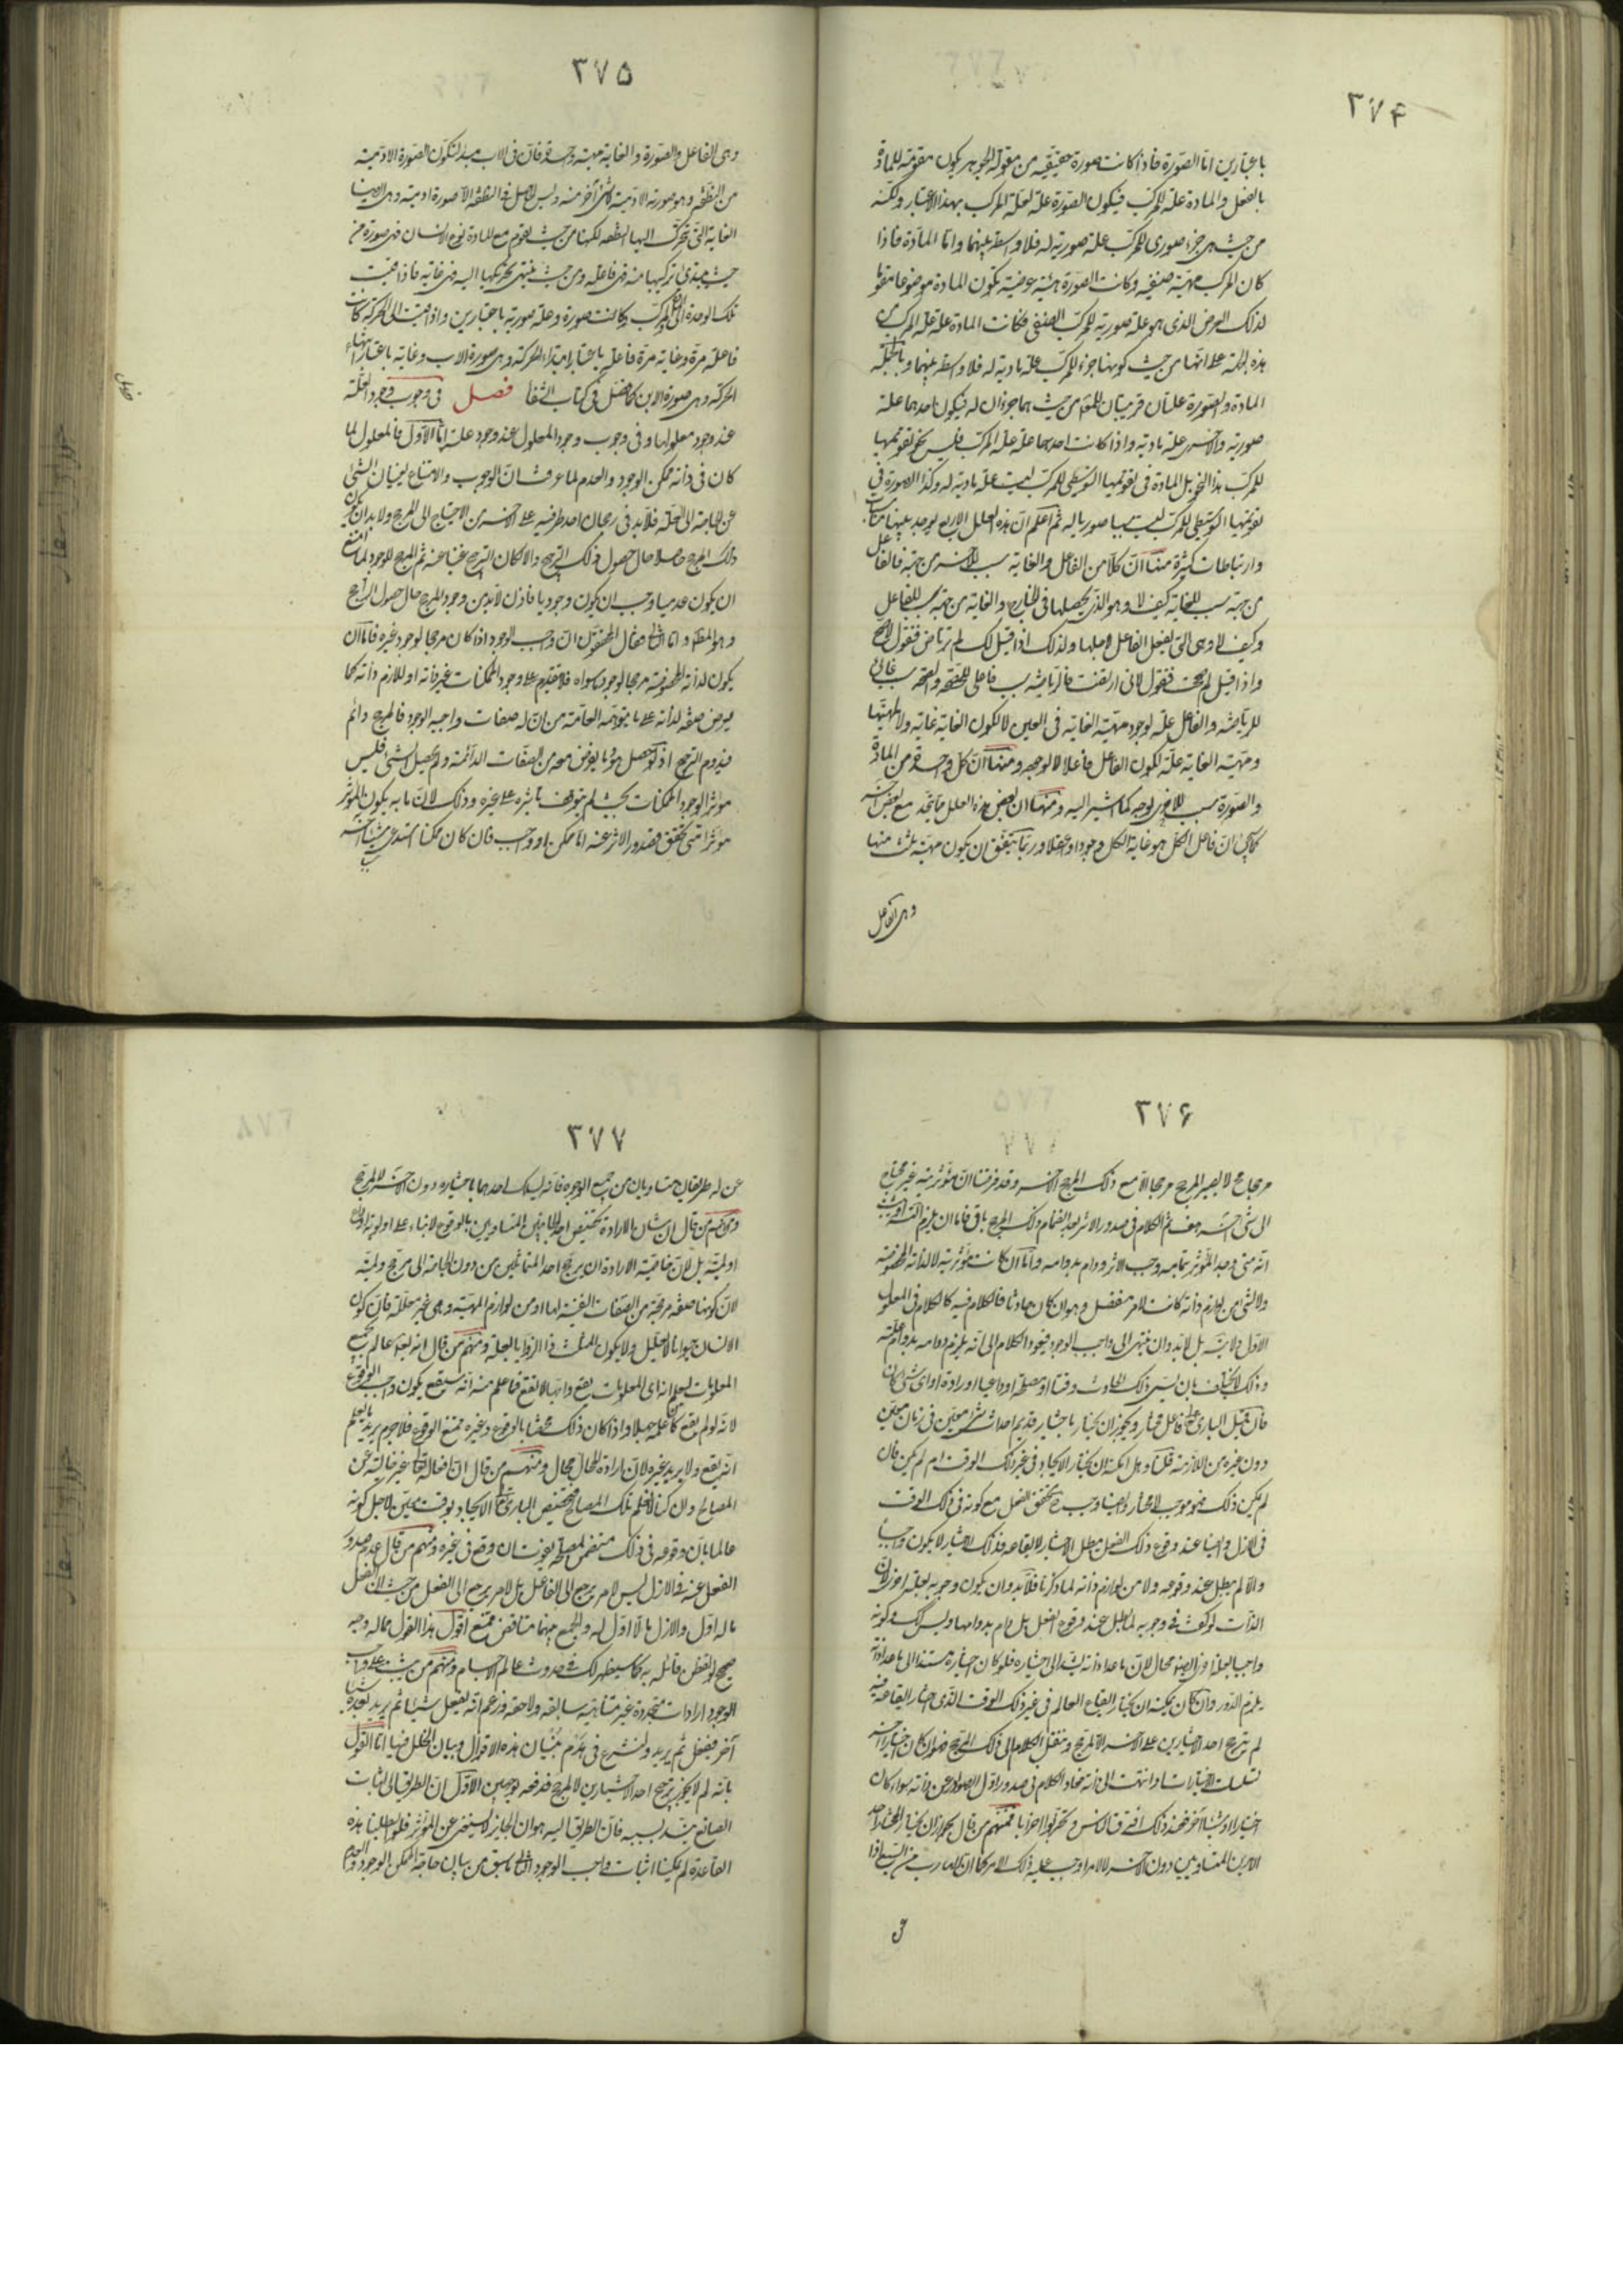 ٣٧۴
باعتبارين اما الصّورة فاذا كانت صورة حقيقيّة من مقولة الجوهر يكون مقومة للمادّة
بالفعل والمادة علة للمركب فيكون الصّورة علة لعلة المركب بهذا الاعتبار ولكنه
من حيث هى جزء صورى للمركب علة صورية له فلا واسطة بينهما وامّا المادّة فاذا
كان المركب مهيّة صنفية وكانت الصّورة هيئة عرضية تكون المادة موضوعا مقوما
لذلك العرض الذى هو علة صورية للمركب الصنفى فكانت المادة علة علة المركب
هذه الجهة على انها من حيث كونها جزء للمركب علة مادية له فلا واسطة بينهما وبالجملة
المادة والصّورة علتان قريبتان للمعلول من حيث هما جزءان له فيكون احدهما علة
صورية والاخرى علة مادية واذا كانت احدهما علة علة المركب فليس نحو تقويمها
للمركب هذا النحو بل المادة فى تقويمها التوسيطى للمركب ليست علة مادية له وكذا الصورة فى
تقويمها التوسيطى للمركب ليست سببا صوريا له ثم اعلم ان هذه العلل الاربع يوجد بينها مناسبات
وارتباطات كثيرة منها انّ كلّا من الفاعل والغاية سبب للاخر من جهة فالفاعل
من جهة سبب للغاية كيف لا وهو الذى يحصلها فى الخارج والغاية من جهة سبب للفاعل
وكيف لا وهى التى يفعل الفاعل لاجلها ولذلك اذا قيل لك لم ترتاض فتقول لاصح
واذا قيل لم صححت فتقول لانى ارتضت فالرياضة سبب فاعلى للصحة والصحة سبب غائى
للرياضة والفاعل علة لوجود مهيّة الغاية فى العين لا لكون الغاية غاية ولا لمهيتها
ومهيّة الغاية علة لكون الفاعل فاعلا لا لوجوده ومنها انّ كل واحدة من المادّة
والصّورة سبب للاخرى بوجه كما اشير اليه ومنها ان بعض هذه العلل مما يتحد مع بعض آخر
كما يجئ انّ فاعل الكل هو غاية الكل وجودا وعقلا وربما يتفق ان يكون مهيّة ثلث منها
وهى الفاعل
٣٧۵
وهى الفاعل والصّورة والغاية مهيّة واحدة فان فى الاب مبدأ لتكوّن الصّورة الادميّة
من النطفة وهو صورته الادميّة لا شئ آخر منه وليس الحاصل فى النطفة الا صورة ادمية وهى ايضا
الغاية التى تتحرك اليها النطفة لكنها من حيث تقوم مع المادة نوع الانسان فهى صورة ومن
حيث يبتدئ تركيبها منه فهى فاعلة ومن حيث ينتهى تحريكها اليه فهى غاية فاذا قيست
تلك الوحدة الى المركب كانت صورة وعلة صورية باعتبارين واذا قيست الى الحركة كانت
فاعلة مرة وغاية مرة فاعلة باعتبار ابتداء الحركة وهى صورة الاب وغاية باعتبار انتهاء
الحركة وهى صورة الابن كما فصّل فى كتاب الشفا فصل فى وجوب وجود العلّة
عند وجود معلولها وفى وجوب وجود المعلول عند وجود علته امّا الاوّل فالمعلول لما
كان فى ذاته ممكن الوجود والعدم لما عرفت انّ الوجوب والامتناع يغنيان الشئ
عن الحاجة الى العلّة فلا بد فى رجحان احد طرفيه على الاخر من الاحتياج الى المرجح ولا بد ان يكون
ذلك المرجح حاصلا حال حصول ذلك الترجيح والا لكان الترجح غنيا عنه ثم المرجح للوجود لما امتنع
ان يكون عدميا وجب ان يكون وجوديا فاذن لا بد من وجود المرجح حال حصول الراجح
وهو المطلوب واما الثانى فقال المحققون ان واجب الوجود اذا كان مرجحا لوجود غيره فامّا ان
يكون لذاته المخصوصة مرجحا لوجود ما سواه فلا يتقدم على وجود الممكنات غير ذاته او للازم ذاته كما
يعرض صفة لذاته على ما يتوهمه العامّة من ان له صفات واجبة الوجود فالمرجح دائم
فيدوم الترجيح اذ لو حصل هو وما يعرض معه من الصّفات الدائمة ولم يحصل الشئ فليس
مؤثرا لوجود الممكنات بحيث لم يتوقف تأثيره على غيره وذلك لانّ ما به يكون المؤثر
مؤثرا متى تحقق فصدور الاثر عنه اما ممكن او واجب فان كان ممكنا استدعى سببا آخر
٣٧۶
مرجحا فح لا يصير المرجح مرجحا الا مع ذلك المرجح الاخر وقد فرضنا انّ مؤثريته غير محتاج
الى شئ آخر هف ثم الكلام فى صدور الاثر بعد انضمام ذلك المرجح باق فاما ان يلزم التسلسل او يثبت
انه متى وجد المؤثر بتمامه وجب الاثر ودام بدوامه وامّا ان كانت مؤثريته لا لذاته المخصوصة
ولا لشئ من لوازم ذاته كانت لامر منفصل وهو ان كان حادثا فالكلام فيه كالكلام فى المعلول
الاوّل ولا يتسلسل بل لابد وان ينتهى الى واجب الوجود فيعود الكلام الى انّه يلزم دوامه بدوام علته
وذلك لا يختلف بان يسمى ذلك الحادث وقتا او مصلحة او داعيا او ارادة او اى شئ كان
فان قيل البارى تعالى فاعل مختار ويجوز ان يختار باختيار قديم احداث شئ معين فى زمان معين
دون غيره من الازمنة قلنا وهل يمكنه ان يختار الايجاد فى غير ذلك الوقت ام لم يمكن فان
لم يمكن ذلك فهو موجب لا مختار وايضا وجب ح تحقق الفعل مع كونه فى ذلك الوقت
فى الازل وايضا عند وقوع ذلك الفعل يبطل الاختيار لايقاعه فذلك الاختيار لا يكون واجبا
والا لم يبطل عند وقوعه ولا من لوازم ذاته لما ذكرنا فلا بد وان يكون وجوبه بعلة اخرى لان
الذات لو كفت فى وجوبه لما بطل عند وقوع الفعل بل دام بدوامها وليس كك وكونه
واجبا بعلة اخرى ايضو محال لانّ ما عدا ذاته يستند الى اختياره فلو كان اختياره مستندا الى ما عدا ذاته
يلزم الدّور وان كان يمكنه ان يختار ايقاع العالم فى غير ذلك الوقت الذى اختار ايقاعه فيه
لم يترجح احد الاختيارين على الاخر الا لمرجح وننقل الكلام الى ذلك المرجح فهو ان كان اختيارا آخر
تسلسلت الاختيارات او انتهت الى ذاته فعاد الكلام فى صدور اوّل الصوادر عن ذاته سواء كان
اختيارا او شيئا آخر فعند ذلك افترق الناس وتحزبوا احزابا فمنهم من قال يجوز ان يختار المختار احد
الامرين المتساويين دون الاخر لا لامر اوجب عليه ذلك الامر كما انّ الهارب من السبع اذا
٣٧٧
عنّ له طريقان متساويان من جميع الوجوه فانّه يسلك احدهما باختياره دون الاخر لا لمرجح
ومنهم من قال ان شان الارادة تخصيص احد الجانبين المتساويين بالوقوع لا بناء على اولوية او
او لميّة بل لانّ خاصّية الارادة ان يرجّح احد المتماثلين من دون الحاجة الى مرجح ولميّة
لانّ كونها صفة مرجحة من الصّفات النفسيّة لها او من لوازم المهيّة وهى غير معللة فانّ كون
الانسان حيوانا لا يعلل ولا يكون المثلث ذا الزوايا بعلة ومنهم من قال انه تعالى عالم بجميع
المعلومات ليعلم انه اى المعلومات يقع وايها لا يقع فما علم منه انّه سيقع يكون واجب الوقوع
لانه لو لم يقع كان علمه جهلا واذا كان ذلك مختصا بالوقوع وغيره ممتنع الوقوع فلا جرم يريد ما يعلم
انّه يقع ولا يريد غيره لانّ ارادة المحال محال ومنهم من قال انّ افعاله تعالى غير خالية عن
المصالح وان كنا لا نعلم تلك المصالح فتخصيص البارى تعالى الايجاد بوقت معيّن لاجل كونه
عالما بانّ وقوعه فى ذلك متضمن لمصلحة يفوت ان وقع فى غيره ومنهم من قال عدم صدور
الفعل عنه فى الازل ليس لامر يرجع الى الفاعل بل لامر يرجع الى الفعل من حيث ان الفعل
ما له اوّل والازل ما لا اوّل له والجمع بينهما متناقض ممتنع اقول هذا القول مما له وجه
صحيح لو تفطن قائله به كما سيظهر لك فى حدوث عالم الاجسام ومنهم من يثبت على واجب
الوجود ارادات متجددة غير متناهية سابقة ولاحقة وزعم انّه يفعل شيئا ثم يريد بعده شيئا
آخر فيفعل ثم يريد ولنشرع فى هدم بنيان هذه الاقوال وبيان الخلل فيها امّا القول
بانّه لم لا يجوز ترجيح احد الاختيارين لا لمرجح فندفعه بوجهين الاوّل انّ الطريق الى اثبات
الصانع ينسد بسببه فانّ الطريق اليه هو ان الجائز لا يستغنى عن المؤثر فلو ابطلنا هذه
القاعدة لم يمكننا اثبات واجب الوجود الثانى ما سبق من بيان حاجة الممكن الوجود والعدم